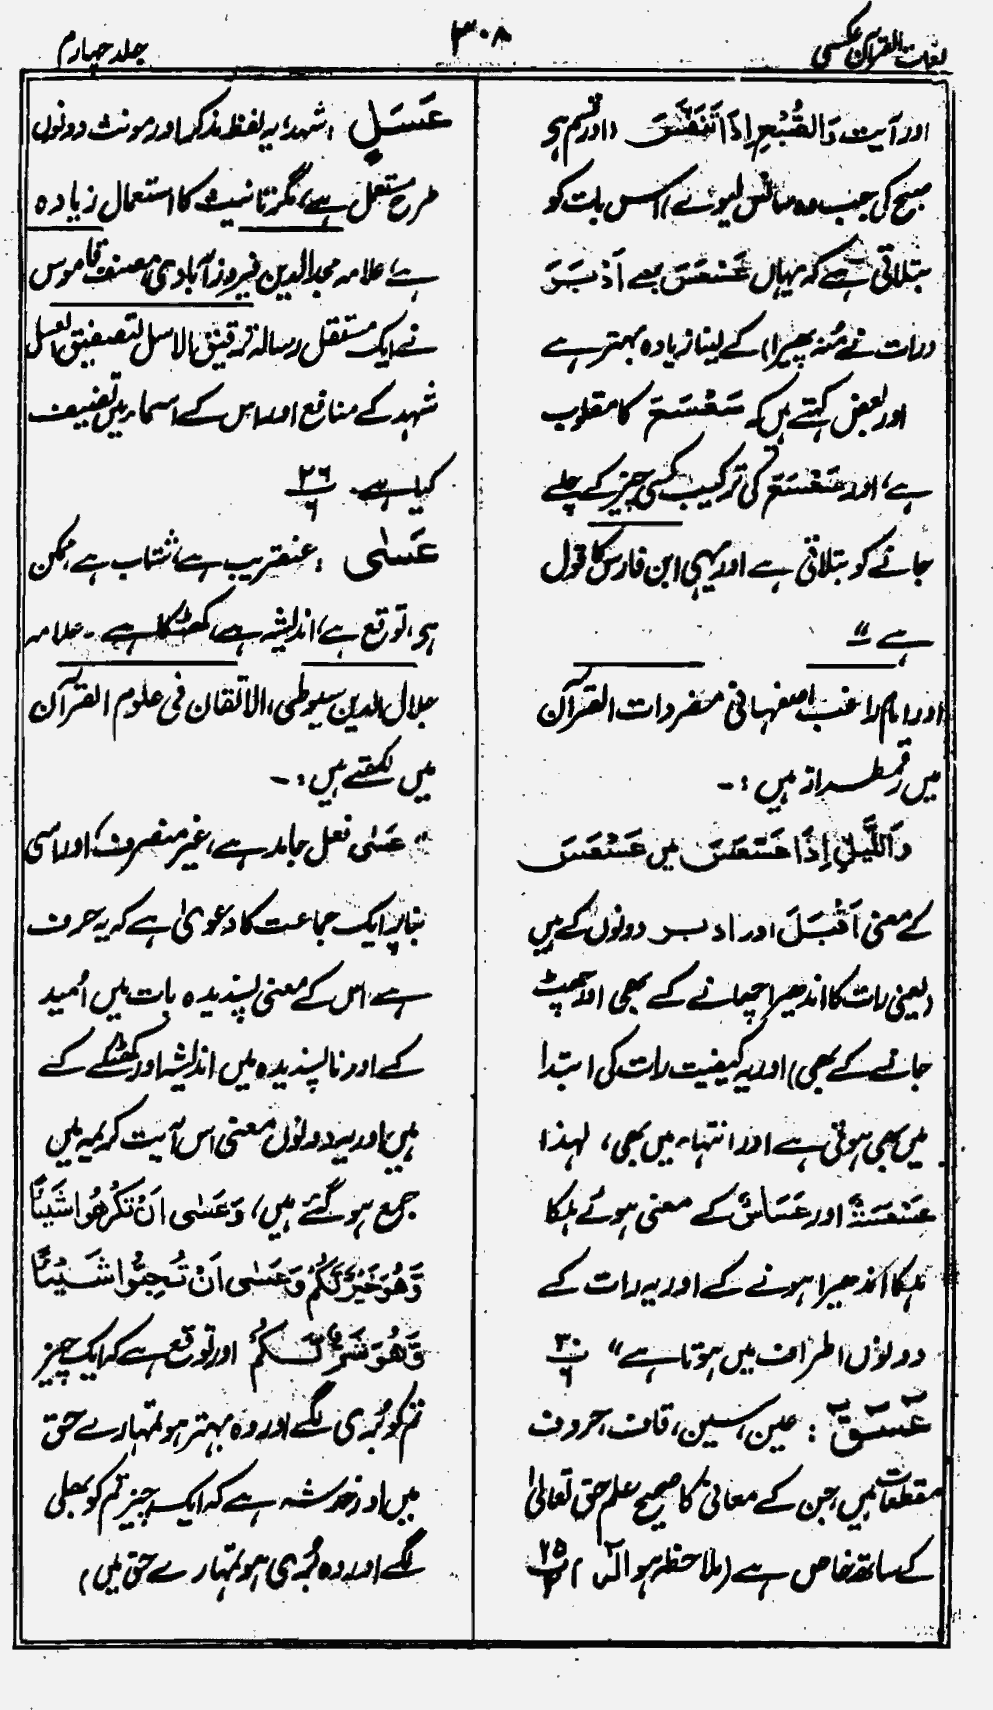 لغات القرآن عکسی
۳۰۸
جلد چہارم
اور آیت وَالصُّبْحِ اِذَا تَنَفَّسَ (اور قسم ہے
صبح کی جب وہ سانس لیوے) اس بات کو
بتلاتی ہے کہ یہاں عَسْعَسَ بمعنے اَدْبَرَ
(رات نے منہ پھیرا) کے لینا زیادہ بہتر ہے
اور بعض کہتے ہیں کہ سَعْسَعَ کا مقلوب
ہے، اور سَعْسَعَ کی ترکیب کسی چیز کے چلے
جانے کو بتلاتی ہے اور یہی ابن فارس کا قول
ہے"
اور امام راغب اصفہانی مفردات القرآن
میں رقمطراز ہیں :-
وَاللَّيْلِ اِذَا عَسْعَسَ میں عَسْعَسَ
کے معنی اَقْبَلَ اور ادبر دونوں کے ہیں
(یعنی رات کا اندھیرا چھانے کے بھی اور چھٹ
جانے کے بھی) اور یہ کیفیت رات کی ابتدا
میں بھی ہوتی ہے اور انتہاء میں بھی، لہذا
عَسْعَسَۃٌ اور عَسَاسٌ کے معنی ہوئے ہلکا
ہلکا اندھیرا ہونے کے اور یہ رات کے
دونوں اطراف میں ہوتا ہے" ۳۰/۶
عٓسٓقٓ : عین، سین، قاف، حروف
مقطعات ہیں، جن کے معانی کا صحیح علم حق تعالیٰ
کے ساتھ خاص ہے (ملاحظہ ہو الٓمٓ) ۲۵/۲
عَسَلٍ : شہد، یہ لفظ مذکر اور مونث دونوں
طرح مستعمل ہے، مگر تانیث کا استعمال زیادہ
ہے، علامہ مجد الدین فیروز آبادی مصنف قاموس
نے ایک مستقل رسالہ ترقیق الاسل لتصفیق العسل
شہد کے منافع اور اس کے اسماء میں تصنیف
کیا ہے۔ ۲۶/۶
عَسٰی : عنقریب ہے، شتاب ہے، ممکن
ہے، توقع ہے، اندیشہ ہے، کھٹکا ہے۔ علامہ
جلال الدین سیوطی، الاتقان فی علوم القرآن
میں لکھتے ہیں :-
"عَسٰی فعل جامد ہے، غیر منصرف، اور اسی
بنا پر ایک جماعت کا دعویٰ ہے کہ یہ حرف
ہے، اس کے معنی پسندیدہ بات میں اُمید
کے اور ناپسندیدہ میں اندیشہ اور کھٹکے کے
ہیں اور یہ دونوں معنی اس آیت کریمہ میں
جمع ہو گئے ہیں، وَعَسٰی اَنْ تَکْرَھُوْا شَیْئًا
وَّھُوَ خَیْرٌ لَّکُمْ وَعَسٰی اَنْ تُحِبُّوْا شَیْئًا
وَّھُوَ شَرٌّ لَّکُمْ اور توقع ہے کہ ایک چیز
تم کو بُری لگے اور وہ بہتر ہو تمہارے حق
میں اور خدشہ ہے کہ ایک چیز تم کو بھلی
لگے اور وہ بُری ہو تمہارے حق میں)